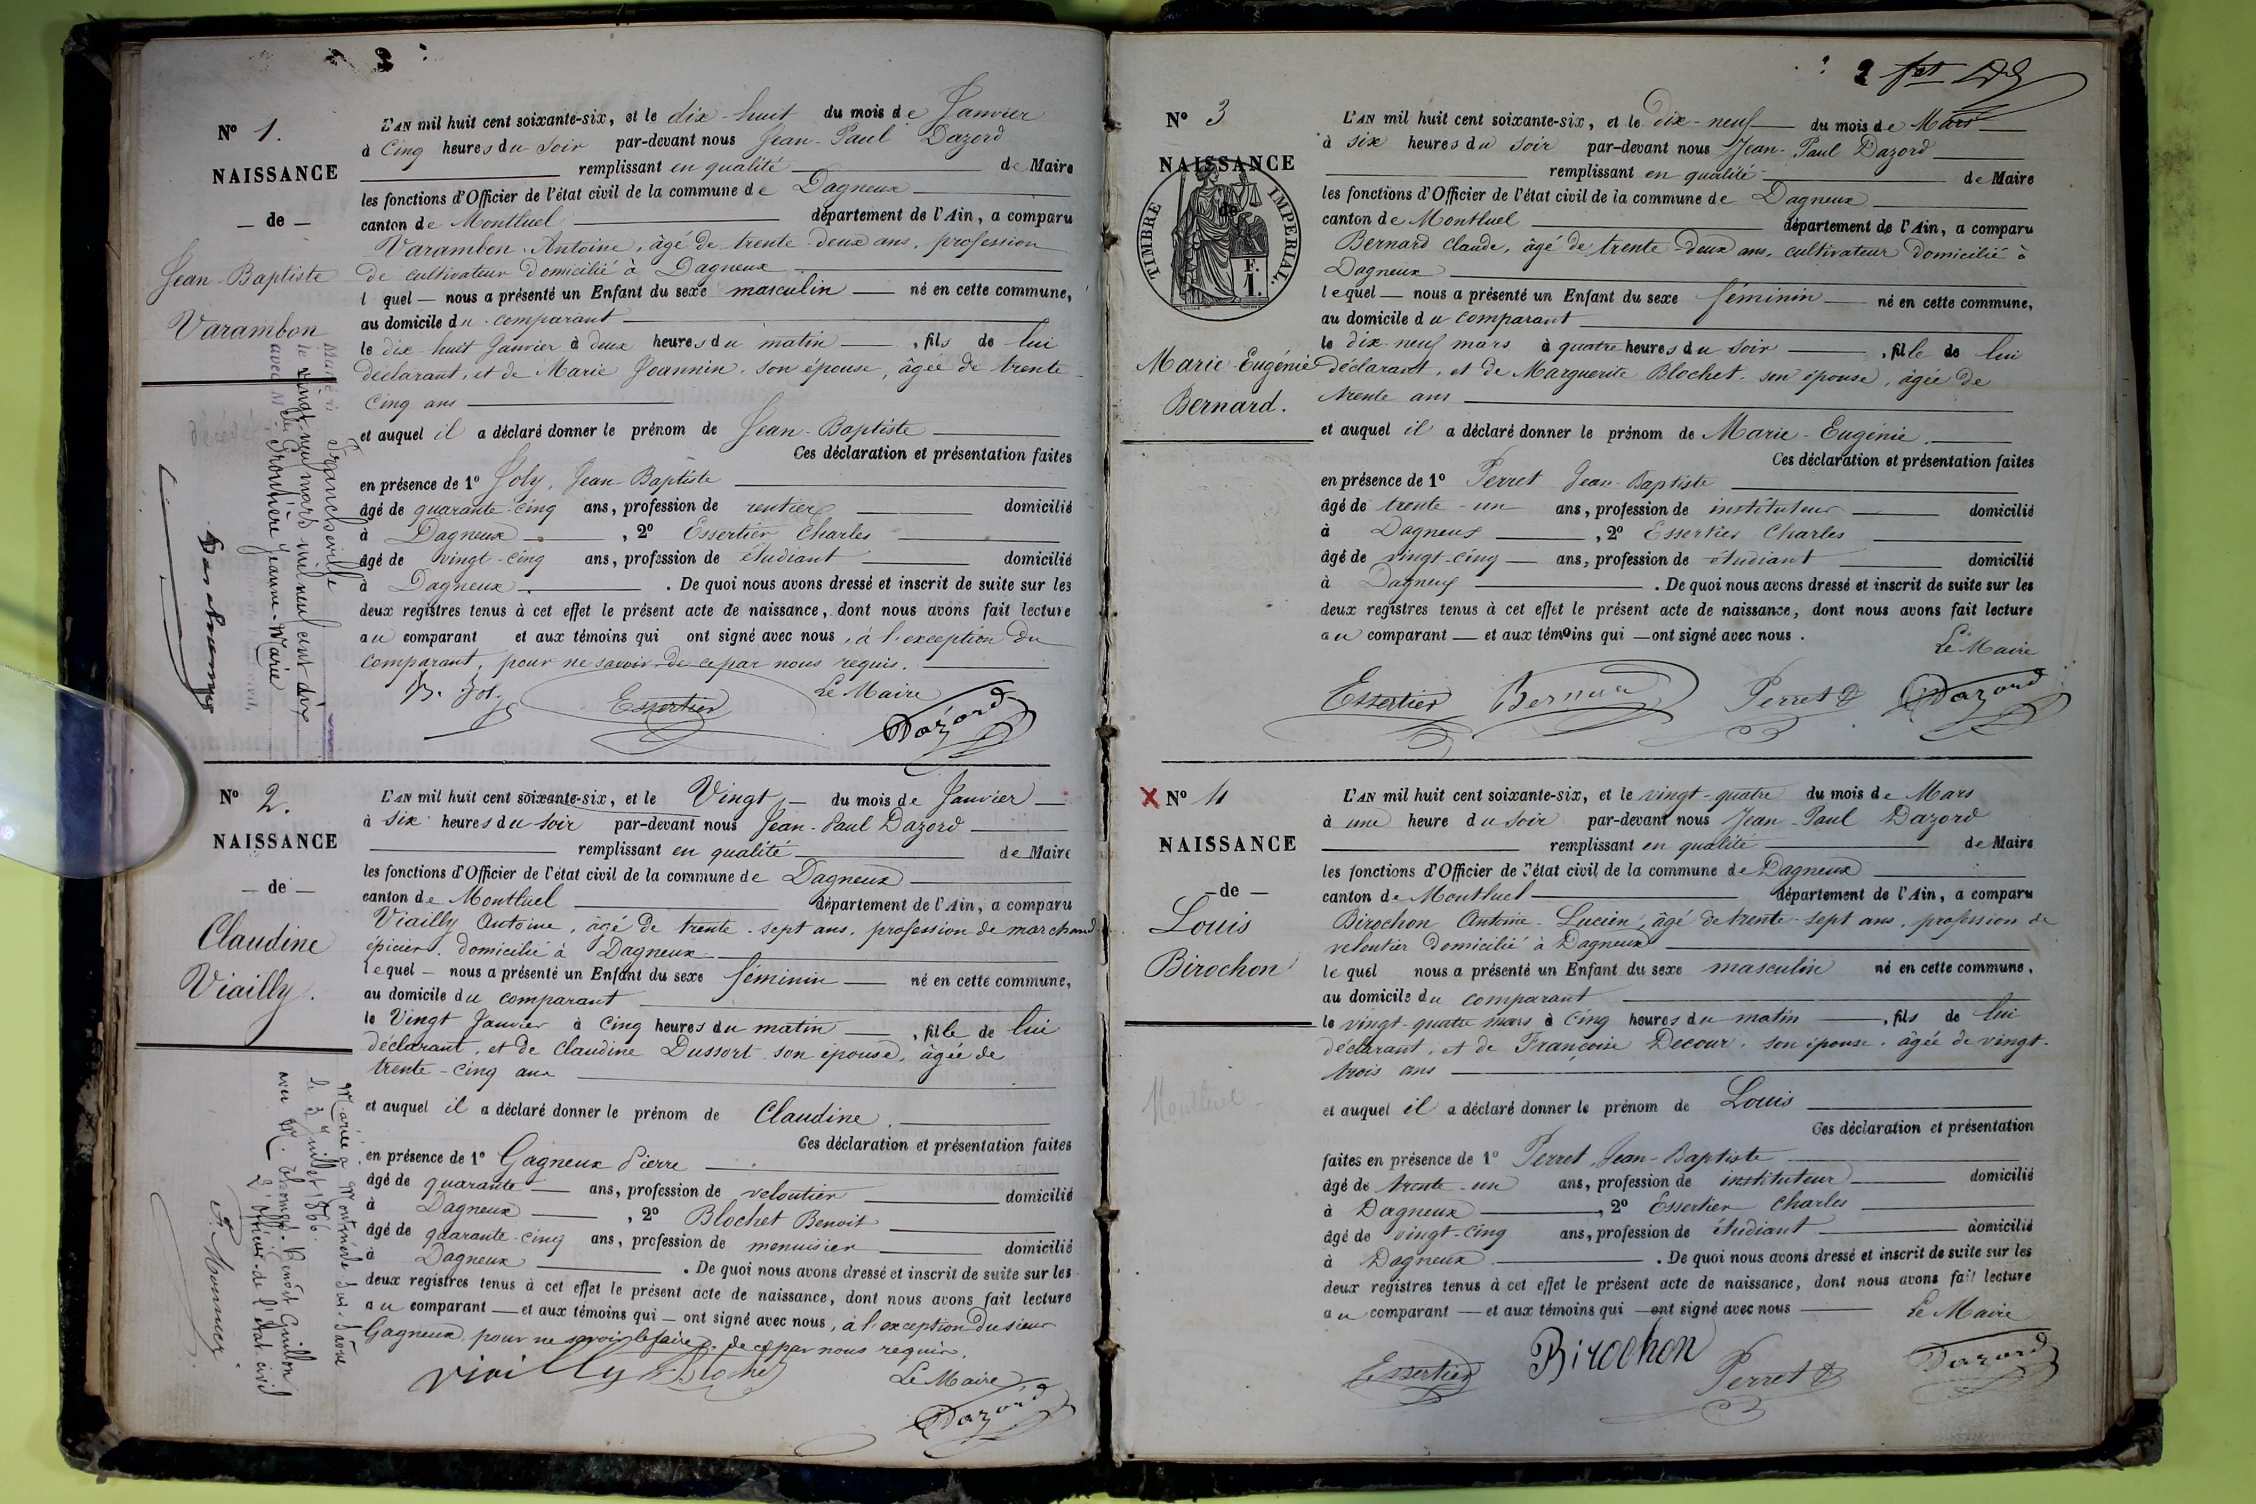 3
Nº 1.
NAISSANCE
— de —
Jean-Baptiste
Varambon
Marié à Francheville
le vingt-neuf mars mil neuf cent dix
avec Jeanne-Marie
L'AN mil huit cent soixante-six, et le dix-huit du mois de Janvier
à Cinq heures du Soir par-devant nous Jean-Paul Dazord
remplissant en qualité de Maire
les fonctions d'Officier de l'état civil de la commune de Dagneux
canton de Montluel département de l'Ain, a comparu
Varambon Antoine, âgé de trente-deux ans, profession
de cultivateur domicilié à Dagneux
lquel — nous a présenté un Enfant du sexe masculin — né en cette commune,
au domicile du comparant
le dix-huit Janvier à deux heures du matin —, fils de lui
déclarant, et de Marie Joannin, son épouse, âgée de trente-
Cinq ans
et auquel il a déclaré donner le prénom de Jean-Baptiste
Ces déclaration et présentation faites
en présence de 1º Joly, Jean-Baptiste
âgé de quarante-cinq ans, profession de rentier domicilié
à Dagneux, 2º Essertier Charles
âgé de vingt-cinq ans, profession de étudiant domicilié
à Dagneux. De quoi nous avons dressé et inscrit de suite sur les
deux registres tenus à cet effet le présent acte de naissance, dont nous avons fait lecture
au comparant et aux témoins qui ont signé avec nous, à l'exception du
comparant, pour ne savoir de ce par nous requis.
Le Maire
Essertier Dazord
Nº 2.
NAISSANCE
— de —
Claudine
Viailly.
Mariée à Montmerle sur Saône
le 3 Juillet 1866
avec M. Benoît Guillon
L'Officier de l'état civil
L'AN mil huit cent soixante-six, et le Vingt — du mois de Janvier
à six heures du soir par-devant nous Jean-Paul Dazord
remplissant en qualité de Maire
les fonctions d'Officier de l'état civil de la commune de Dagneux
canton de Montluel département de l'Ain, a comparu
Viailly Antoine, âgé de trente-sept ans, profession de marchand
épicier, domicilié à Dagneux
lequel — nous a présenté un Enfant du sexe féminin — né en cette commune,
au domicile du comparant
le Vingt Janvier à Cinq heures du matin —, fille de lui
déclarant, et de Claudine Dussort son épouse, âgée de
trente-cinq ans
et auquel il a déclaré donner le prénom de Claudine
Ces déclaration et présentation faites
en présence de 1º Gagneux Pierre
âgé de quarante — ans, profession de veloutier domicilié
à Dagneux, 2º Blochet Benoit
âgé de quarante-cinq ans, profession de menuisier domicilié
à Dagneux. De quoi nous avons dressé et inscrit de suite sur les
deux registres tenus à cet effet le présent acte de naissance, dont nous avons fait lecture
au comparant — et aux témoins qui — ont signé avec nous, à l'exception du sieur
Gagneux pour ne savoir le faire, de ce par nous requis.
Viailly Blochet Le Maire
Dazord
2
Nº 3
NAISSANCE
de
TIMBRE IMPÉRIAL.
F.
1.
Marie-Eugénie
Bernard.
L'AN mil huit cent soixante-six, et le Dix-neuf — du mois de Mars
à six heures du soir par-devant nous Jean-Paul Dazord
remplissant en qualité de Maire
les fonctions d'Officier de l'état civil de la commune de Dagneux
canton de Montluel département de l'Ain, a comparu
Bernard Claude, âgé de trente-deux ans, cultivateur domicilié à
Dagneux
lequel — nous a présenté un Enfant du sexe féminin — né en cette commune,
au domicile du comparant
le dix-neuf mars à quatre heures du soir —, fille de lui
déclarant, et de Marguerite Blochet, son épouse, âgée de
trente ans
et auquel il a déclaré donner le prénom de Marie-Eugénie
Ces déclaration et présentation faites
en présence de 1º Perret Jean-Baptiste
âgé de trente-un ans, profession de instituteur domicilié
à Dagneux, 2º Essertier Charles
âgé de vingt-cinq — ans, profession de étudiant domicilié
à Dagneux. De quoi nous avons dressé et inscrit de suite sur les
deux registres tenus à cet effet le présent acte de naissance, dont nous avons fait lecture
au comparant — et aux témoins qui — ont signé avec nous.
Le Maire
Essertier Bernard Perret Dazord
X Nº 4
NAISSANCE
— de —
Louis
Birochon
Montluel
L'AN mil huit cent soixante-six, et le vingt-quatre du mois de Mars
à une heure du soir par-devant nous Jean-Paul Dazord
remplissant en qualité de Maire
les fonctions d'Officier de l'état civil de la commune de Dagneux
canton de Montluel département de l'Ain, a comparu
Birochon Antoine-Lucien, âgé de trente-sept ans, profession de
veloutier domicilié à Dagneux
lequel nous a présenté un Enfant du sexe masculin né en cette commune,
au domicile du comparant
le vingt-quatre mars à Cinq heures du matin —, fils de lui
déclarant, et de Françoise Decour, son épouse, âgée de vingt-
trois ans
et auquel il a déclaré donner le prénom de Louis
Ces déclaration et présentation
faites en présence de 1º Perret, Jean-Baptiste
âgé de trente-un ans, profession de instituteur domicilié
à Dagneux, 2º Essertier Charles
âgé de vingt-cinq ans, profession de étudiant domicilié
à Dagneux. De quoi nous avons dressé et inscrit de suite sur les
deux registres tenus à cet effet le présent acte de naissance, dont nous avons fait lecture
au comparant — et aux témoins qui — ont signé avec nous — Le Maire
Essertier Birochon Perret Dazord